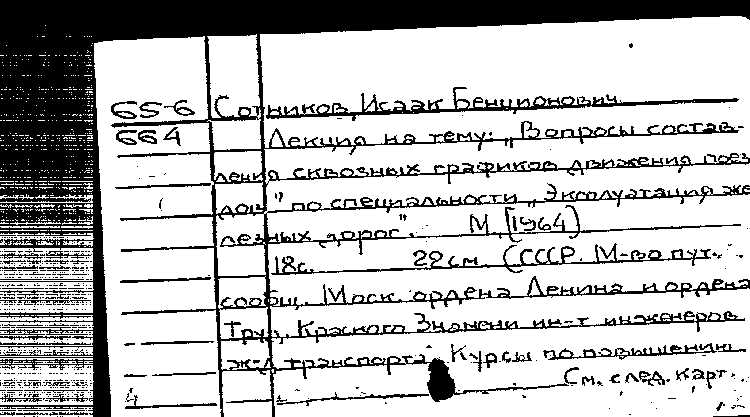 65-6 Сотников, Исаак Бенционович
664 Лекция на тему: „Вопросы состав-
ления сквозных графиков движения поез-
дов" по специальности „Эксплуатация же-
лезных дорог". М. [1964]
18с. 22см. (СССР. М-во пут.
сообщ. Моск. ордена Ленина и ордена
Труд. Красного Знамени ин-т инженеров
ж-д транспорта. Курсы по повышению
См. след. карт.
4